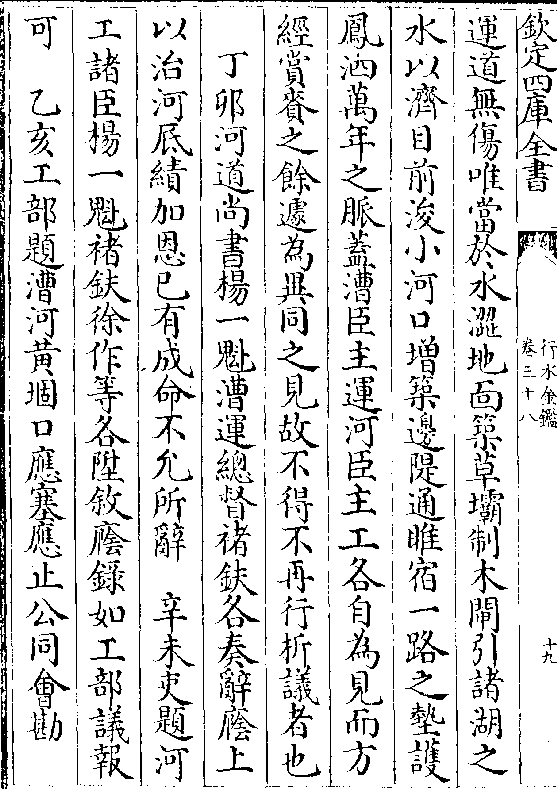 欽定四庫全書
行水金鑑
卷三十八
十九
運道無傷唯當於水澀地面築草壩制木閘引諸湖之
水以濟目前浚小河口增築邊隄通睢宿一路之墊護
鳳泗萬年之脈蓋漕臣主運河臣主工各自為見而方
經賞賚之餘遽為異同之見故不得不再行析議者也
丁卯河道尚書楊一魁漕運總督褚鈇各奏辭廕上
以治河厎績加恩已有成命不允所辭　辛未吏題河
工諸臣楊一魁褚鈇徐作等各陞敘廕錄如工部議報
可　乙亥工部題漕河黃堌口應塞應止公同會勘